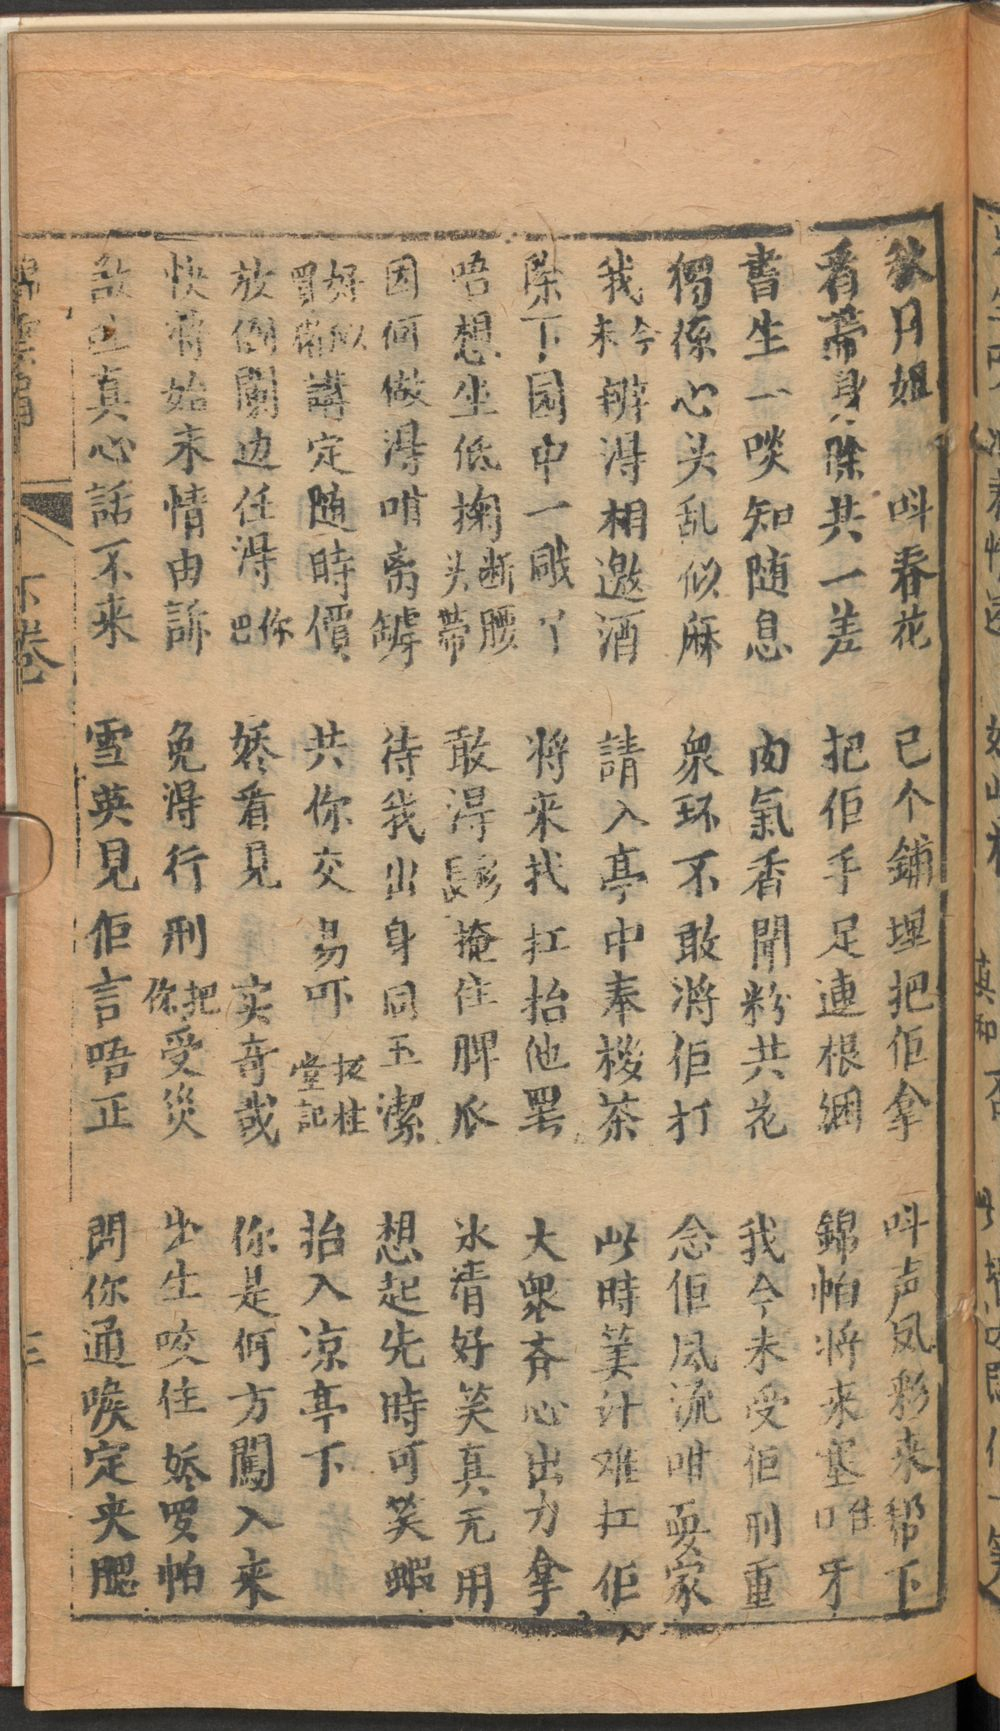 秋月姐 叫春花 已个鋪埋把佢拿 叫声凤彩来帮下
看蒂身除共一差 把佢手足連根綑 錦帕将来塞唯牙
書生一啖知随息 肉氣香聞粉共花 我今未受佢刑重
獨係心头乱似麻 衆环不敢将佢打 念佢風流咁耍家
我今未辨得相邀酒 請入亭中奉梭茶 此時美计难扛佢
除下园中一戙丫 将来找扛抬他罢 大衆斉心出力拿
唔想坐低掬断腰头帶 敢得彩長掩住脾爪 氷清好笑真无用
因何做得咁离罅 待我出身同玉潔 想起先時可笑蝦
好似買猪講定随時價 共你交易吓 拔柱堂記 抬入凉亭下
放倒園边任得你巴 娇看見 实奇或 你是何方闖入来
快将始末情由訴 免得行刑把你受災 出生咬住娇罗帕
故此真心話不来 雪英見佢言唔正 問你通喉定夾腮
下卷